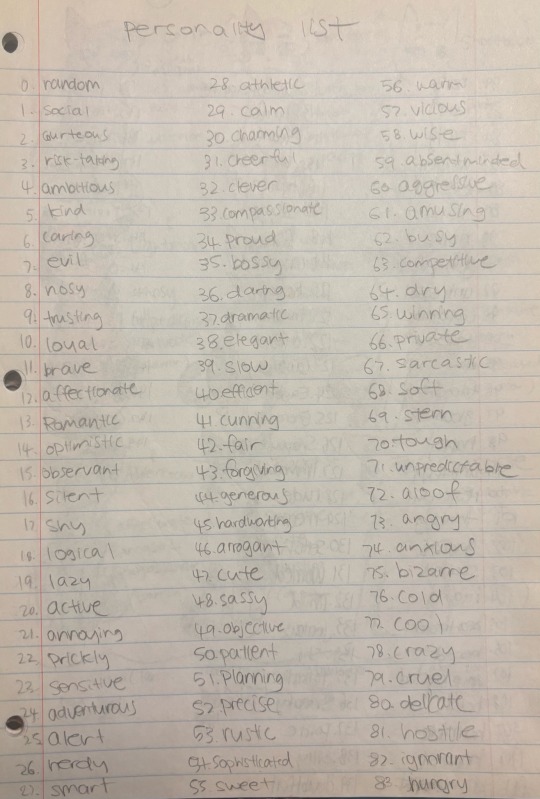 personality list
0. random
1. social
2. courteous
3. risk-taking
4. ambitious
5. kind
6. caring
7. evil
8. nosy
9. trusting
10. loyal
11. brave
12. affectionate
13. Romantic
14. optimistic
15. observant
16. silent
17. shy
18. logical
19. lazy
20. active
21. annoying
22. prickly
23. sensitive
24. adventurous
25. alert
26. nerdy
27. smart
28. athletic
29. calm
30 charming
31. cheerful
32. clever
33. compassionate
34. proud
35. bossy
36. daring
37. dramatic
38. elegant
39. slow
40. efficient
41 cunning
42. fair
43. forgiving
44. generous
45 hardworking
46. arrogant
47. cute
48. sassy
49. objective
50. patient
51. Planning
52. precise
53. rustic
54. sophisticated
55. sweet
56. warm
57. vicious
58. wise
59. absent minded
60. aggressive
61. amusing
62. busy
63. competitive
64. dry
65. winning
66. private
67. sarcastic
68. soft
69. stern
70. tough
71. unpredictable
72. aloof
73. angry
74. anxious
75. bizarre
76. cold
77. cool
78. crazy
79. cruel
80. delicate
81. hostile
82. ignorant
83. hungry